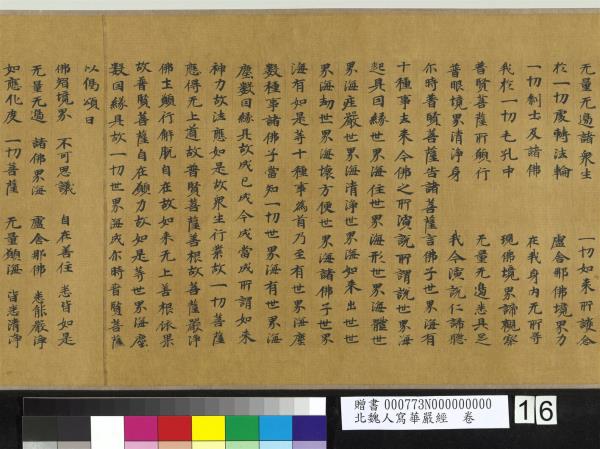 无量无邊諸衆生　一切如來所談合
於一切處轉法輪　盧舍那佛境界力
一切刹土及諸佛　在我身內无所㝵
我於一切毛孔中　現佛境界諦觀察
普賢菩薩所願行　无量无邊悉具足
普眼境界清淨身　我今演說仁諦聽
尒時普賢菩薩告諸菩薩言佛子世界海有
十種事去來今佛之所演說所謂說世界海
起具因緣世界海住世界海形世界海體世
界海莊嚴世界海清淨世界海如來出世世
界海劫世界海壞方便世界海諸佛子世界
海有如是等十種事為首乃至有世界海塵
數種事諸佛子當知一切世界海有世界海
塵數因緣具故成已成今成當成所謂如來
神力故法應如是故衆生行業故一切菩薩
應得无上道故普賢菩薩善根故菩薩嚴淨
佛土願行解脫自在故如來无上善根依果
故普賢菩薩自在願力故如是等世界海塵
數因緣具故一切世界海成尒時普賢菩薩
以偈頌曰
佛境界　不可思議　自在善住　悉皆如是
无量无邊　諸佛界海　盧舍那佛　悉能嚴淨
如應化度　一切菩薩　无量願海　皆悉清淨
贈書 000773N000000000
北魏人寫華嚴經　卷
16